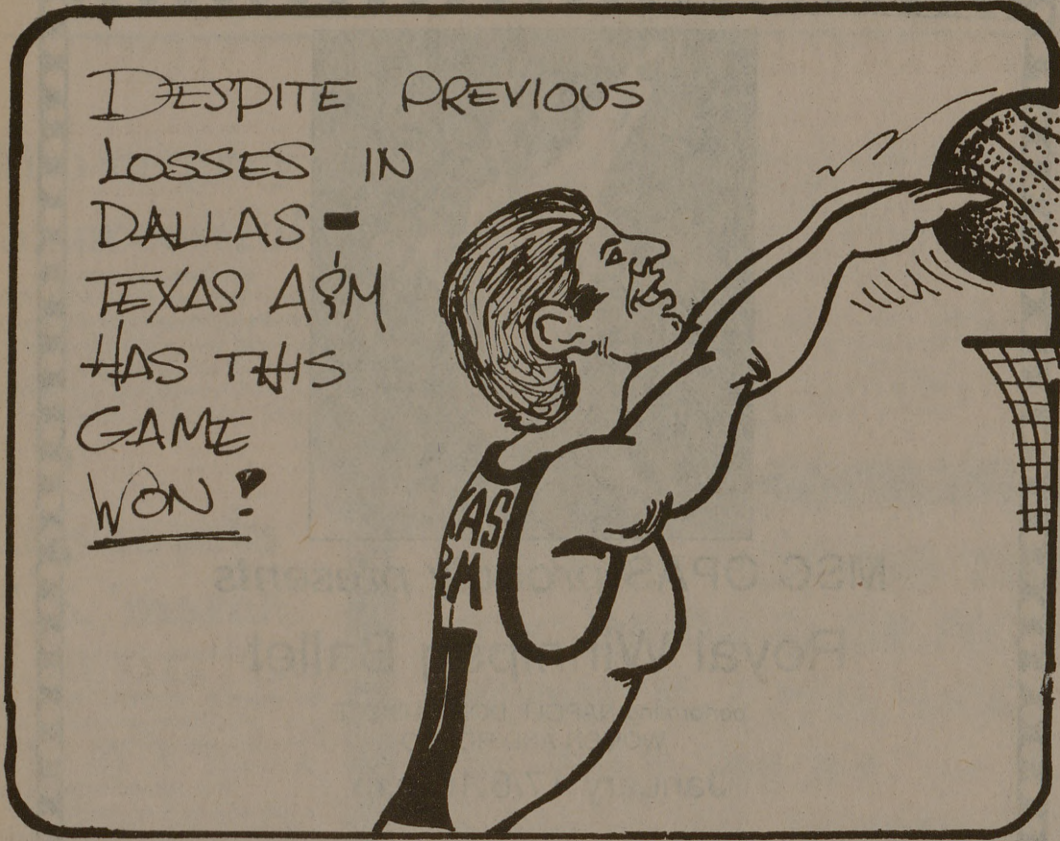 DESPITE PREVIOUS
LOSSES IN
DALLAS -
TEXAS A&M
HAS THIS
GAME
WON!
XAS
&M